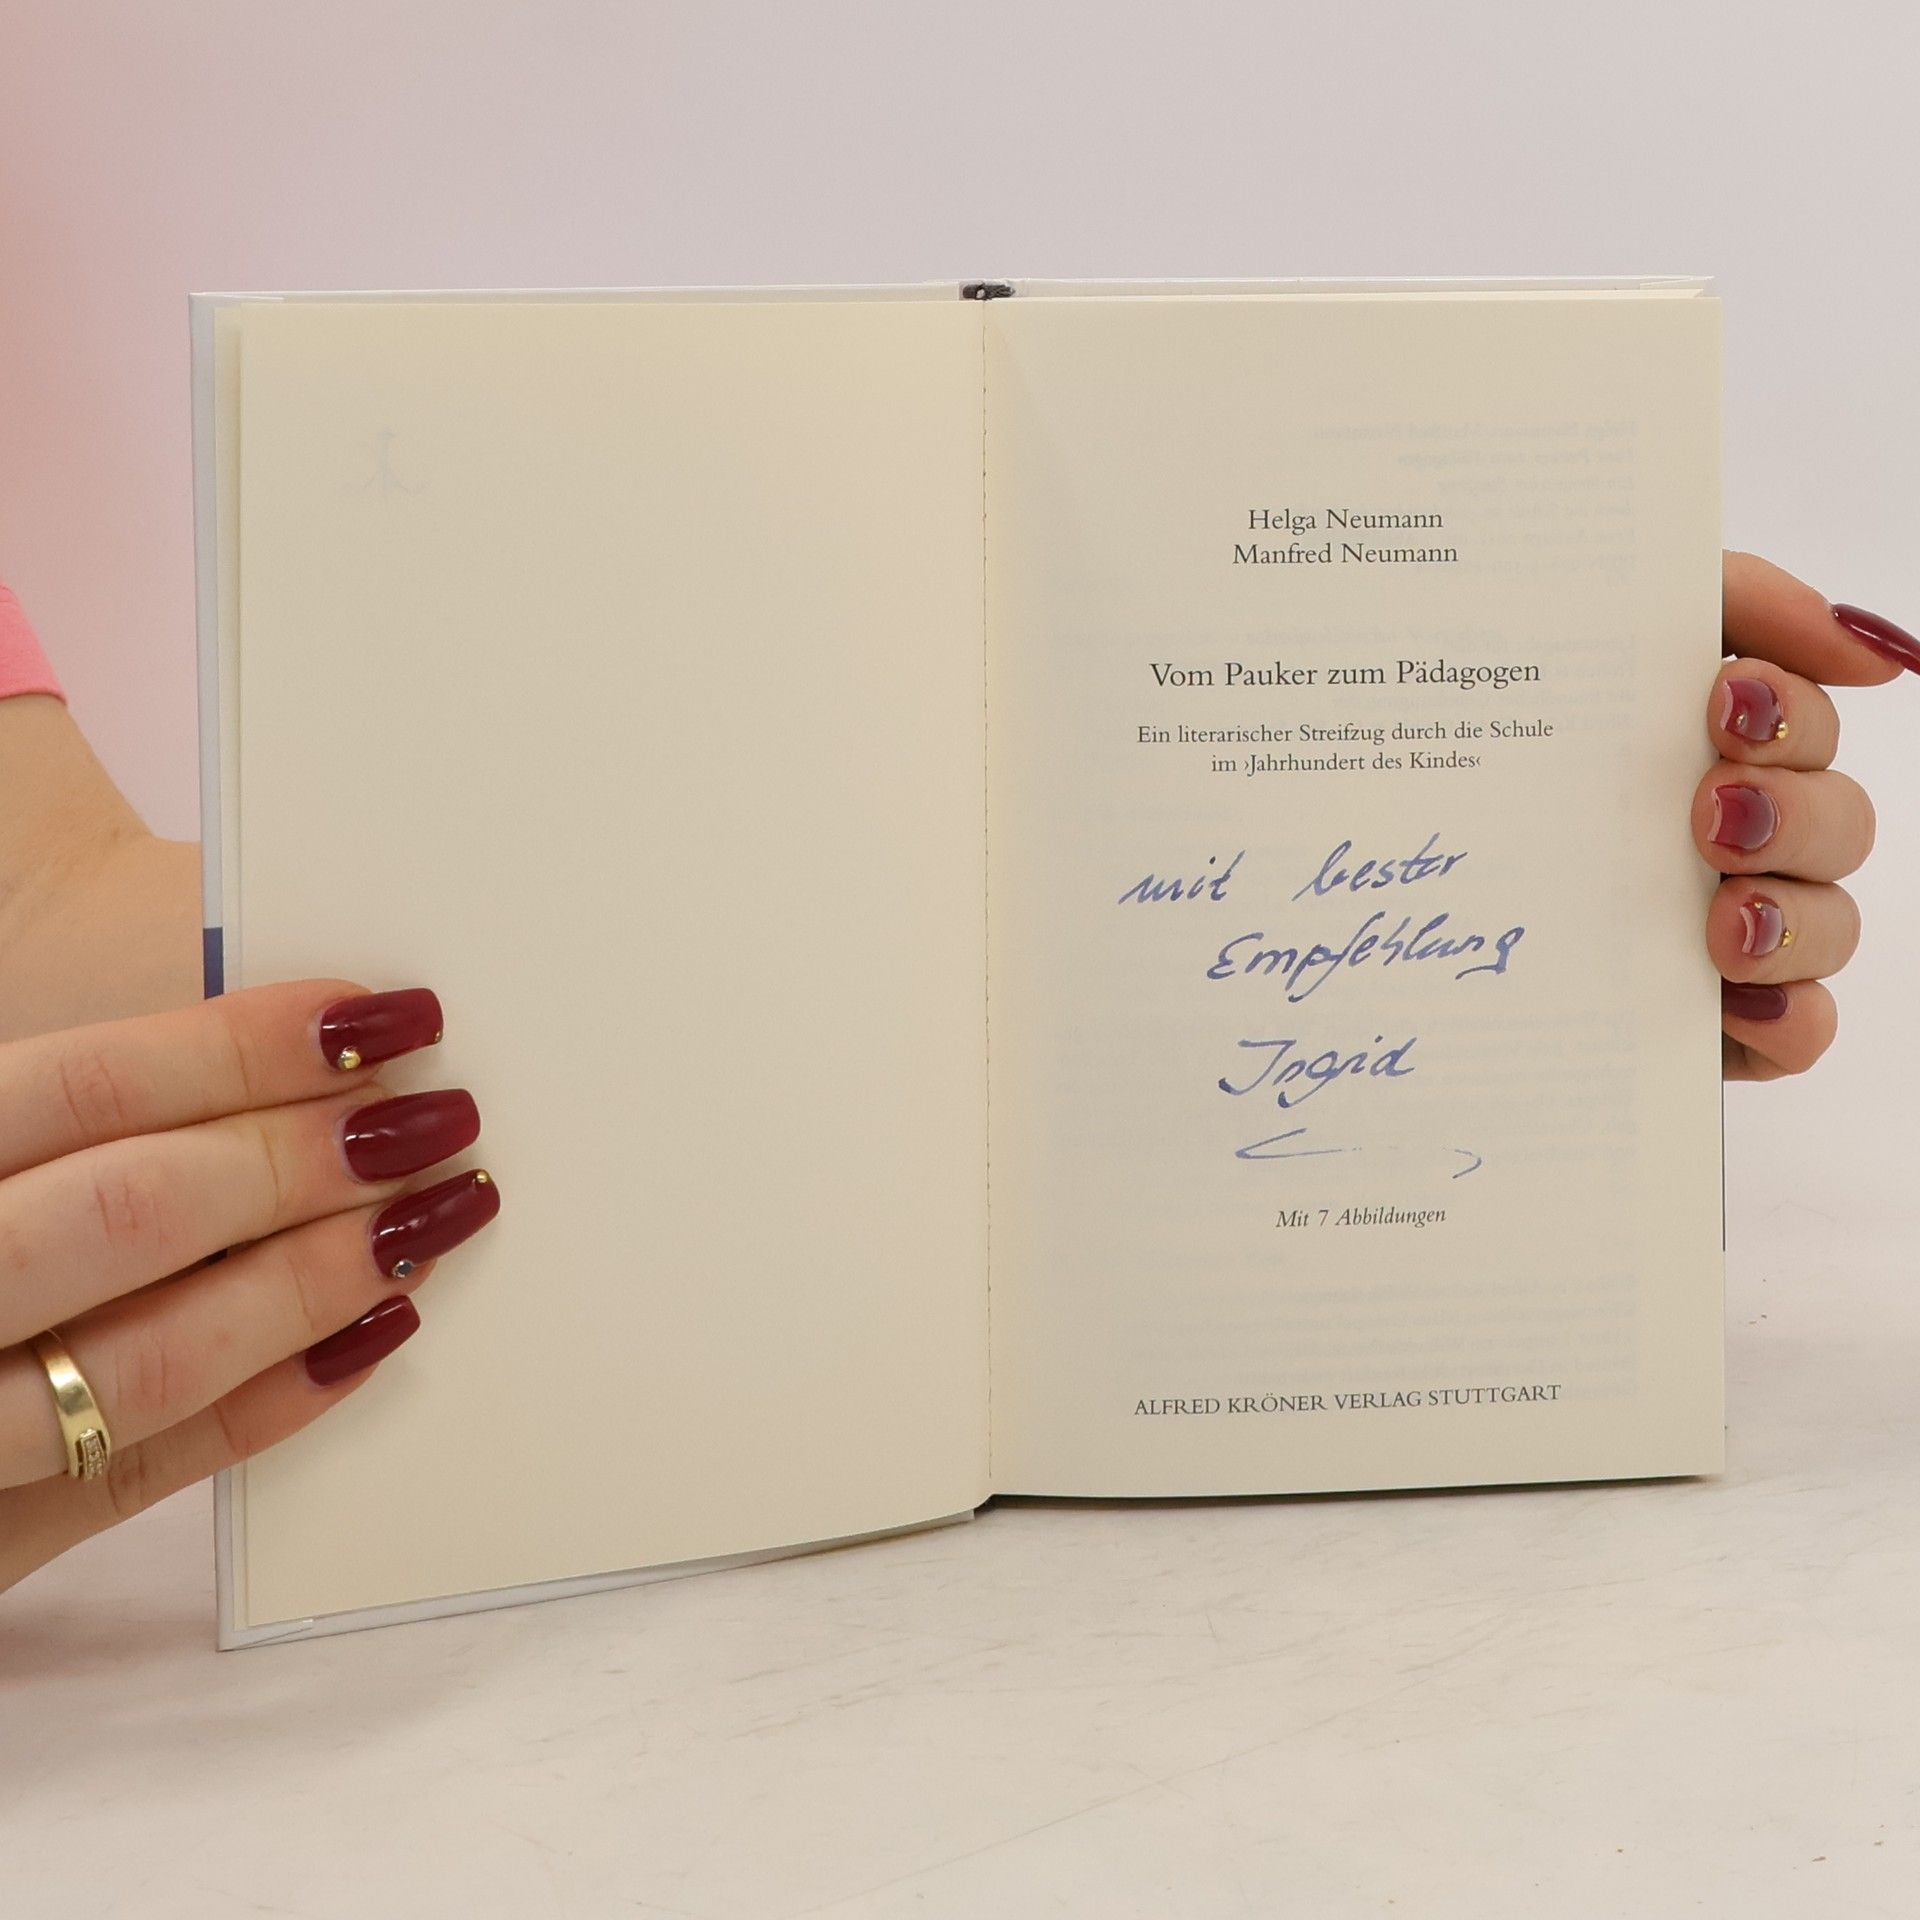 Helga Neumann
Manfred Neumann
Vom Pauker zum Pädagogen
Ein literarischer Streifzug durch die Schule
im ›Jahrhundert des Kindes‹
mit bester
Empfehlung
Ingrid
Mit 7 Abbildungen
ALFRED KRÖNER VERLAG STUTTGART